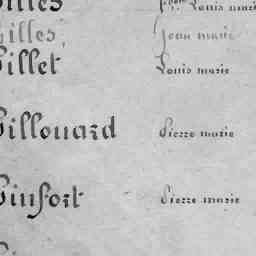 Gilles Louis marie
Gilles, Jean marie
Gillet Louis marie
Gillouard Pierre marie
Ginfort Pierre marie